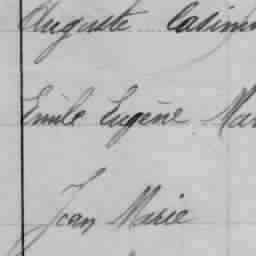 Auguste Casimir
Emile Eugène Mar
Jean Marie